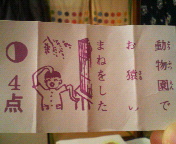 動物園で
お猿の
まねをした
4点